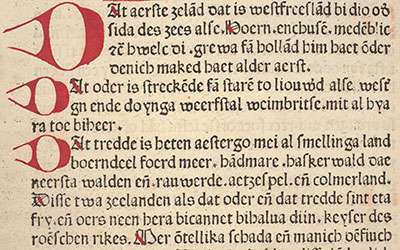 Dat aerste zelād dat is westfreeslād bi dio oſ
sida des zees alſe. Hoern. enchuſe. medēblic
rē hwelc di. grewa fā hollād him haet ōder
denich maked haet alder aerst.
Dat oder is streckēde fā starē to liouwd alſe. west̉
gn ende doynga weerfstal weimbritſe. mit al hya
ra toe biheer.
Dat tredde is heten aestergo mei al smellinga land
boerndeel foerd meer. hādmare. hasker wald dae
neersta walden eñ rauwerde. aetzespel. eñ colmerland.
Disſe twa zeelanden als dat oder eñ dat tredde sint eta
fry. eñ oers neen hera bicannet bihalua diin. keyser des
roēschen rikes. Mer ōtellika schada eñ manich oēfiuch